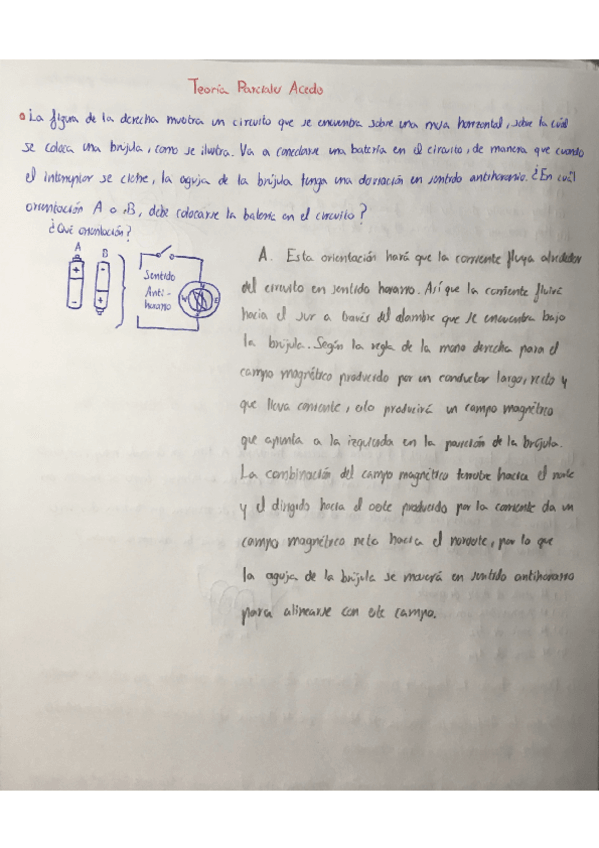 Teoría Parciales Acedo
La figura de la derecha muestra un circuito que se encuentra sobre una mesa horizontal, sobre la cuál
se coloca una brújula, como se ilustra. Va a conectarse una batería en el circuito, de manera que cuando
el interruptor se cierre, la aguja de la brújula tenga una desviación en sentido antihorario. ¿En cuál
orientación A o B, debe colocarse la batería en el circuito?
¿Qué orientación?
A
B
+
-
-
+
Sentido
Anti-
horario
N
W
E
S
A. Esta orientación hará que la corriente fluya alrededor
del circuito en sentido horario. Así que la corriente fluirá
hacia el sur a través del alambre que se encuentra bajo
la brújula. Según la regla de la mano derecha para el
campo magnético producido por un conductor largo, recto y
que lleva corriente, esto producirá un campo magnético
que apunta a la izquierda en la posición de la brújula.
La combinación del campo magnético terrestre hacia el norte
y el dirigido hacia el oeste producido por la corriente da un
campo magnético neto hacia el noroeste, por lo que
la aguja de la brújula se moverá en sentido antihorario
para alinearse con este campo.